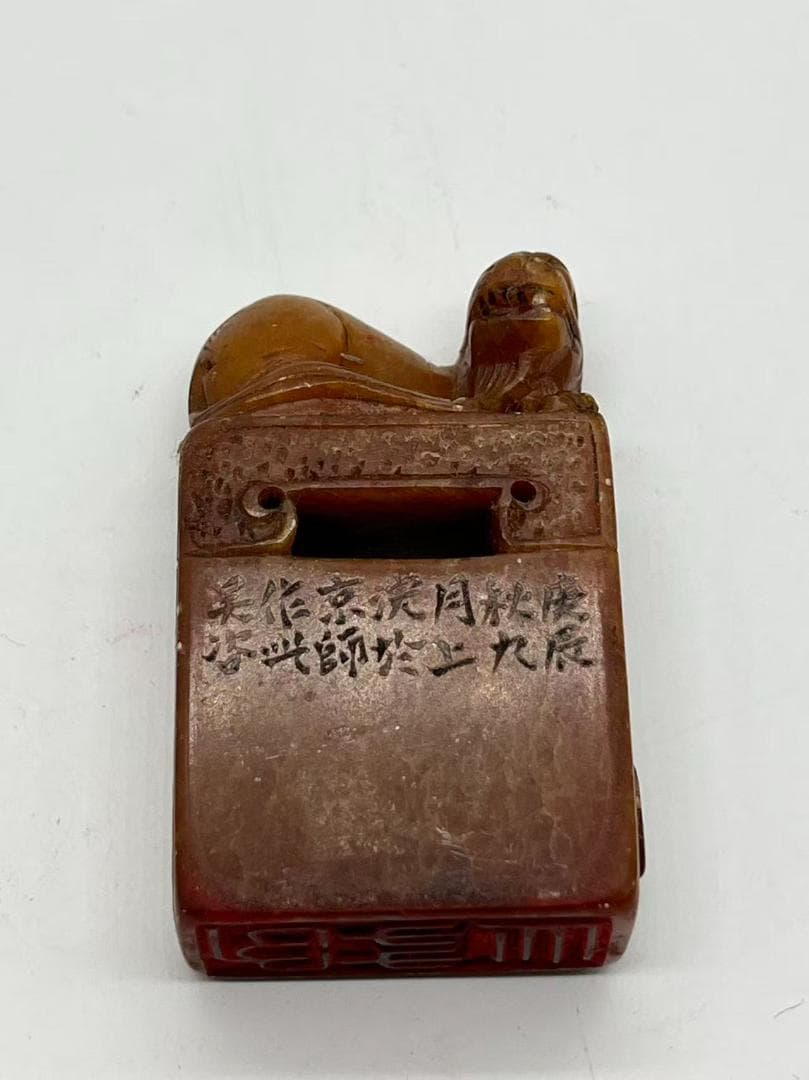 庚辰
秋九
月上
浣於
京師
作此
吳咨